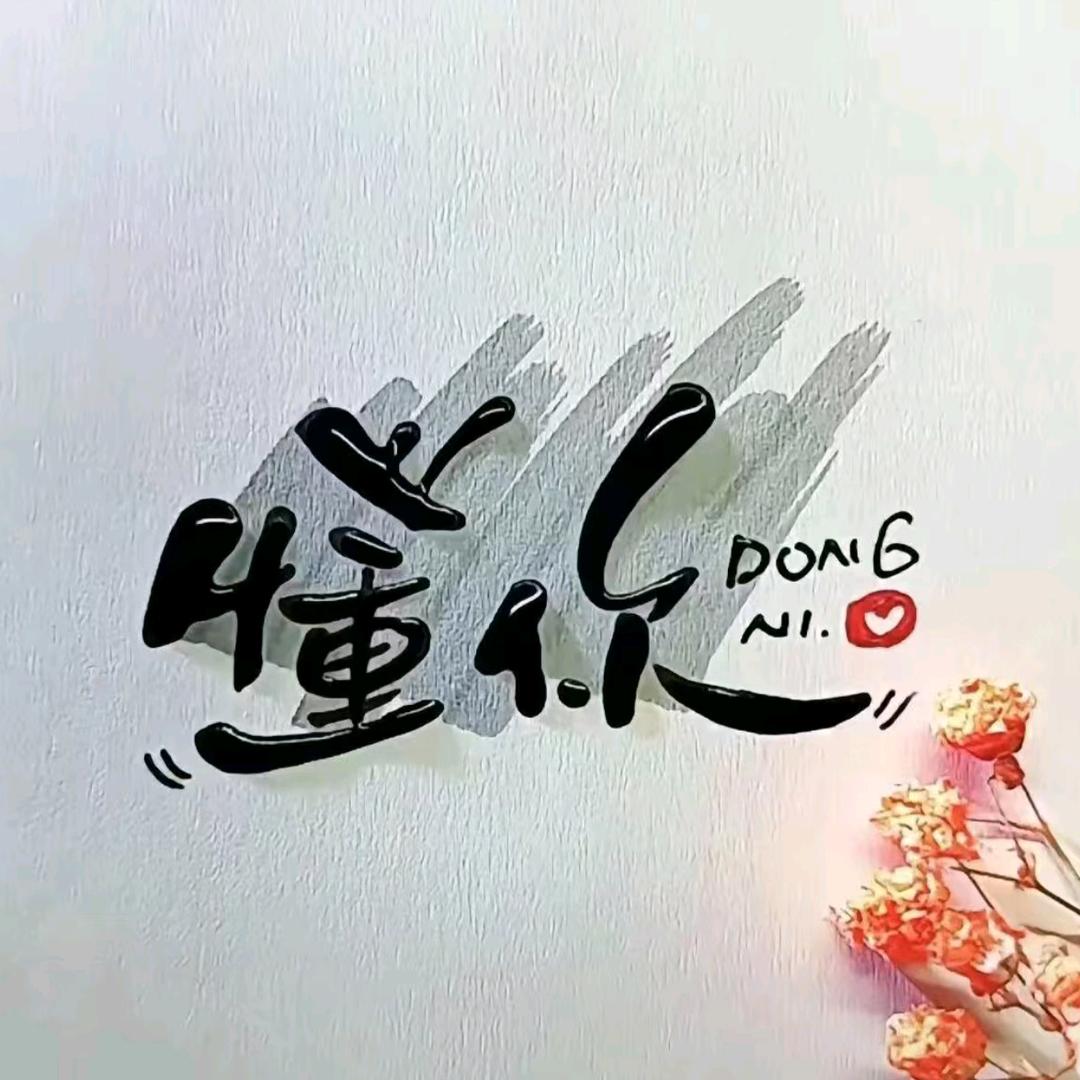 懂你
DONG
NI.